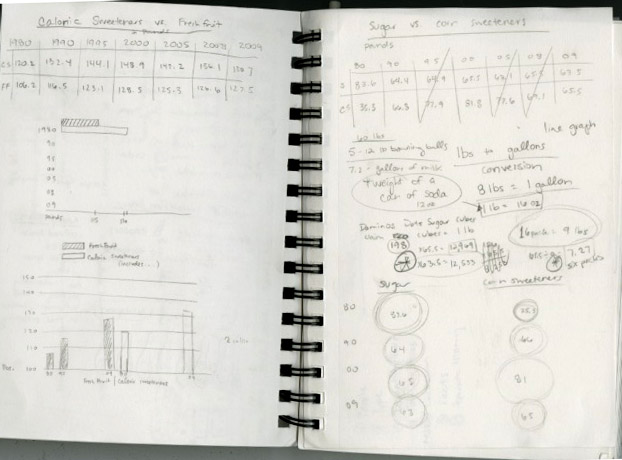 Caloric Sweeteners vs. Fresh fruit
in pounds
1980 1990 1995 2000 2005 2009
CS 120.2 132.4 144.1 148.9
FF 106.2 116.5 123.1 128.5 125.3 126.6 127.5
1980
90
95
00
05
09
pounds
Fresh fruit
Caloric sweeteners
(includes...)
150
140
130
120
110
100
Fresh fruit | Caloric sweeteners
Sugar vs. corn sweeteners
pounds
80 90 95 00 05 08 09
S 83.6 64.4 64.9 65.5 63.1 65.5 63.5
CS 35.3 66.8 77.9 81.8 77.6 69.1 65.5
line graph
60 lbs
5 - 12 lb bowling balls
7.2 - gallons of milk
weight of a
can of soda
12 oz
lbs to gallons
conversion
8 lbs = 1 gallon
1 lb = 16 oz
Dominos Dots Sugar cubes
claim cubes = 1 lb
198
x 65.5 = 12,969
x 63.5 = 12,573
7.27
six packs
Sugar
corn sweeteners
80 83.6 35.3
90 64 66
00 65 81
09 63 65